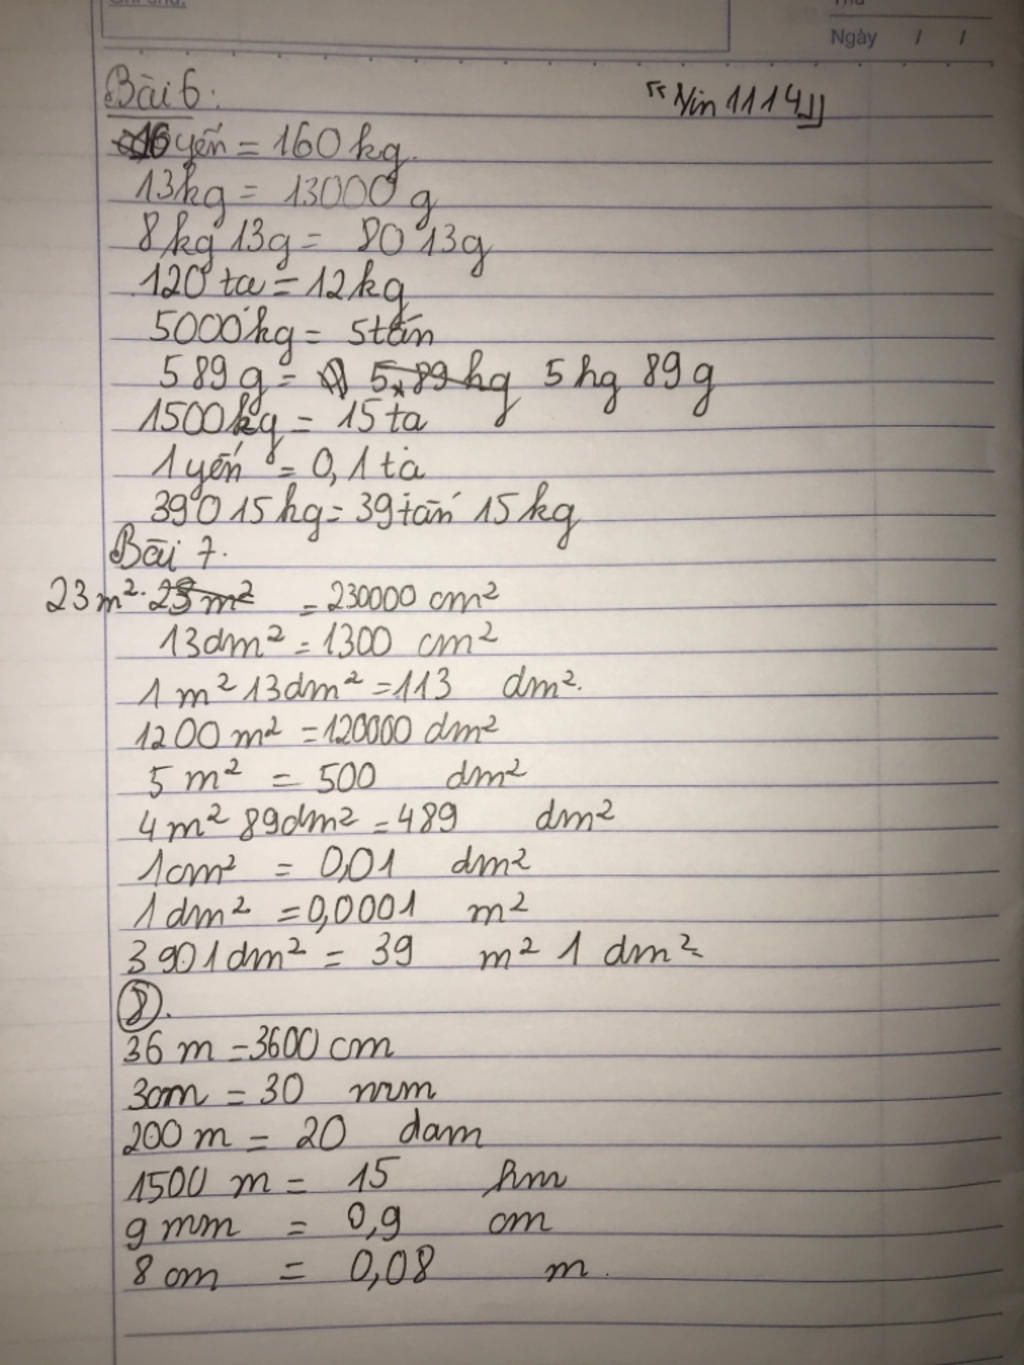 Thứ
Ngày / /
Bài 6:
"Nin 1114"
16 yến = 160 kg.
13kg = 13000 g
8kg 13g = 8013g
120 tạ = 12kg
5000kg = 5tấn
589g = 5,89 hg 5hg 89g
1500kg = 15 tạ
1 yến = 0,1 tạ
39015kg = 39 tấn 15kg
Bài 7.
23m². 23m² = 230000 cm²
13dm² = 1300 cm²
1 m² 13dm² = 113 dm².
1200 m² = 120000 dm²
5 m² = 500 dm²
4 m² 89dm² = 489 dm²
1cm² = 0,01 dm²
1 dm² = 0,0001 m²
3901dm² = 39 m² 1 dm²
8.
36 m = 3600 cm
3cm = 30 mm
200 m = 20 dam
1500 m = 15 hm
9 mm = 0,9 cm
8 cm = 0,08 m.